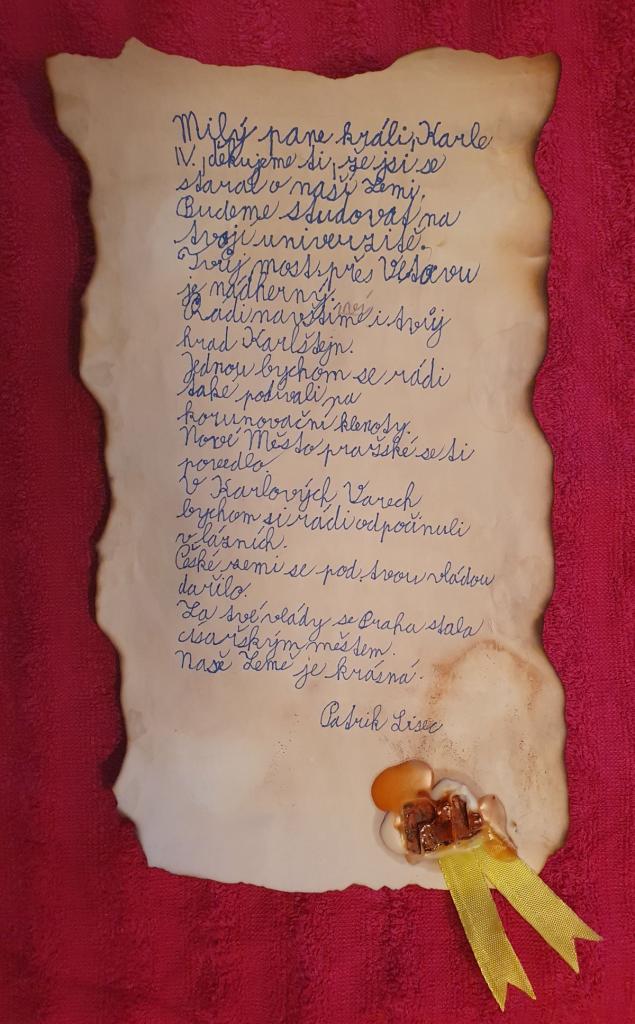 Milý pane králi, Karle
IV., děkujeme ti, že jsi se
staral o naší Zemi.
Budeme studovat na
tvoji univerzitě.
Tvůj most přes Vltavu
je nádherný.
Rádi navštíme i tvůj
hrad Karlštejn.
Jednou bychom se rádi
také podívali na
korunovační klenoty.
Nové Město pražské se ti
povedlo.
V Karlových Varech
bychom si rádi odpočinuli
v lázních.
České zemi se pod tvou vládou
dařilo.
Za tvé vlády se Praha stala
císařským městem.
Naše Země je krásná.
Patrik Lisec